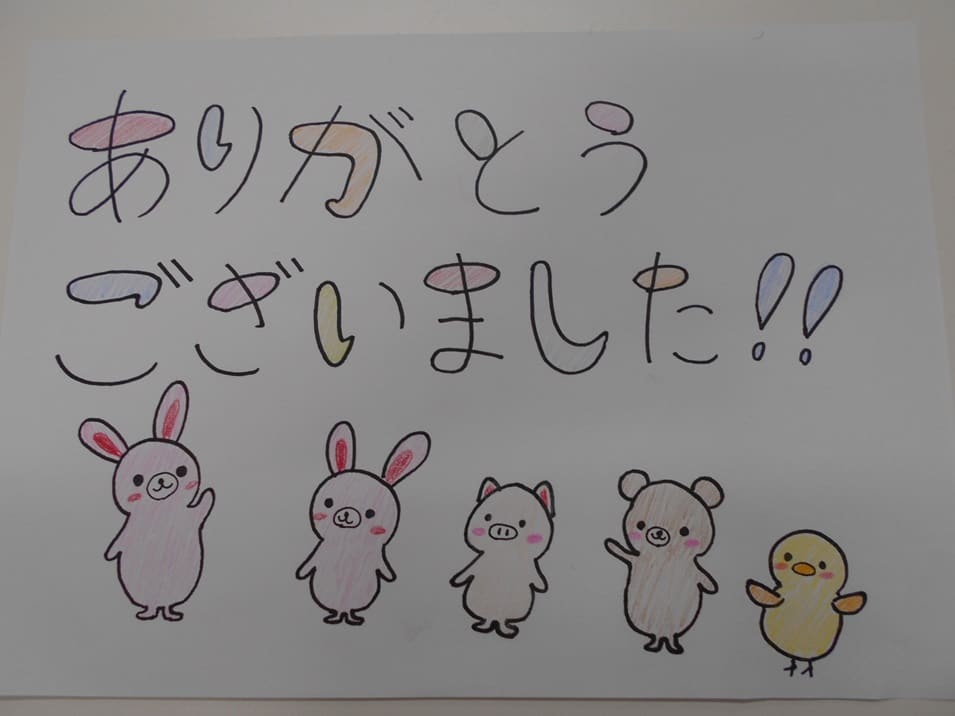 ありがとう
ございました!!